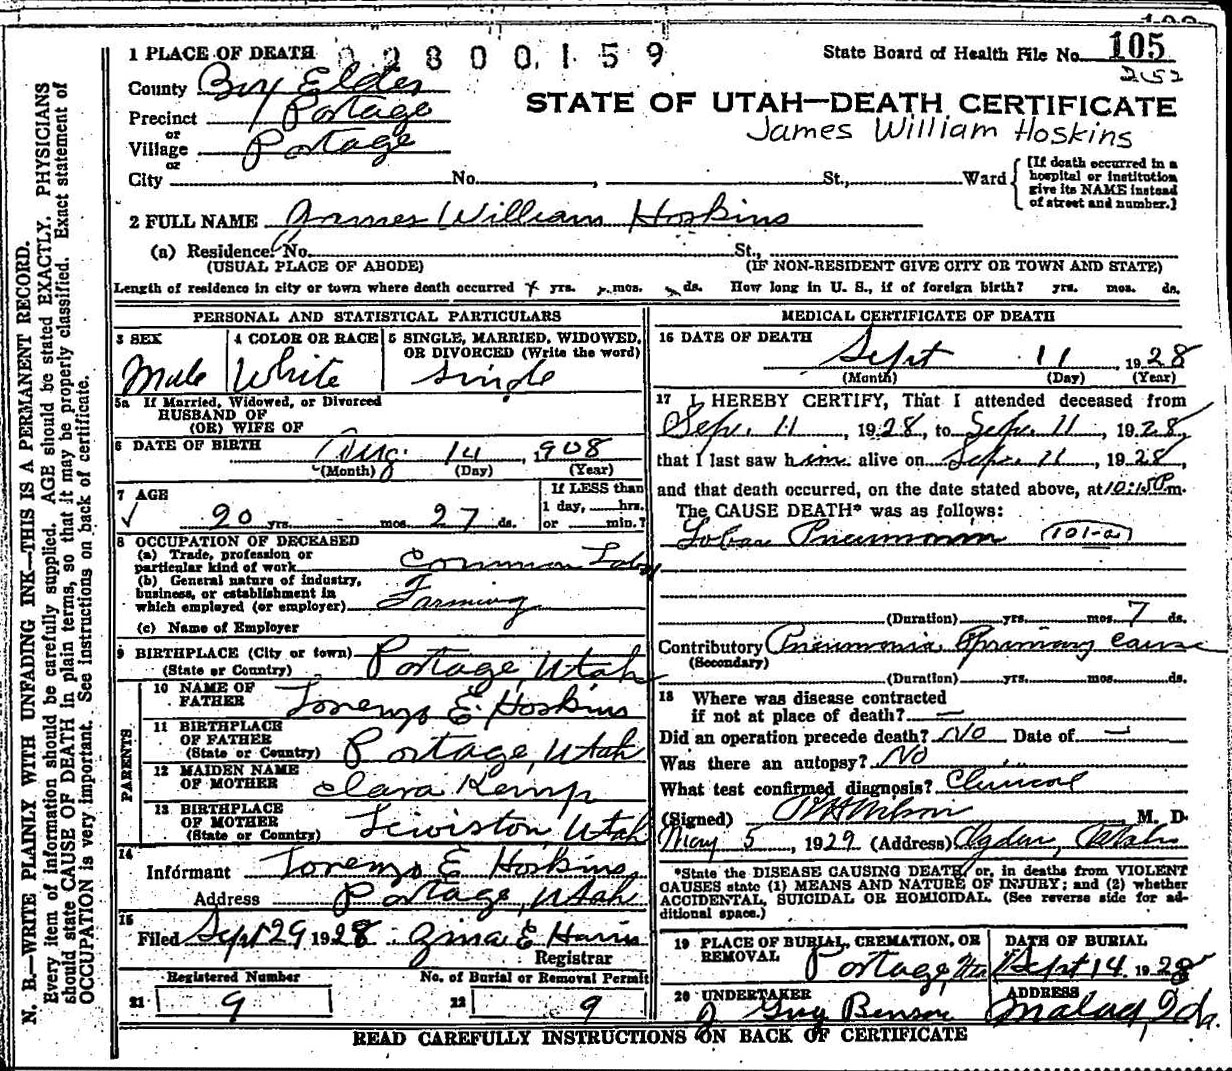 1 PLACE OF DEATH 02800159 State Board of Health File No. 105
2152
County Box Elder
STATE OF UTAH—DEATH CERTIFICATE
Precinct Portage
James William Hoskins
or
Village Portage
or
City No. , St., Ward
[If death occurred in a hospital or institution give its NAME instead of street and number.]
2 FULL NAME James William Hoskins
(a) Residence. No. St.,
(USUAL PLACE OF ABODE) (IF NON-RESIDENT GIVE CITY OR TOWN AND STATE)
Length of residence in city or town where death occurred yrs. mos. ds. How long in U. S., if of foreign birth? yrs. mos. ds.
PERSONAL AND STATISTICAL PARTICULARS
3 SEX 4 COLOR OR RACE 5 SINGLE, MARRIED, WIDOWED,
OR DIVORCED (Write the word)
Male White Single
5a If Married, Widowed, or Divorced
HUSBAND OF
(OR) WIFE OF
6 DATE OF BIRTH Aug. 14 1908
(Month) (Day) (Year)
7 AGE If LESS than
1 day, hrs.
20 yrs. mos. 27 ds. or min.?
8 OCCUPATION OF DECEASED
(a) Trade, profession or
particular kind of work Common Labor
(b) General nature of industry,
business, or establishment in
which employed (or employer) Farming
(c) Name of Employer
9 BIRTHPLACE (City or town)
(State or Country) Portage, Utah
PARENTS
10 NAME OF
FATHER Lorenzo E. Hoskins
11 BIRTHPLACE
OF FATHER
(State or Country) Portage, Utah
12 MAIDEN NAME
OF MOTHER Clara Kemp
13 BIRTHPLACE
OF MOTHER
(State or Country) Lewiston, Utah
14
Informant Lorenzo E Hoskins
Address Portage, Utah
15
Filed Sept 29 1928 Zina E Harris
Registrar
Registered Number No. of Burial or Removal Permit
21 9 22 9
MEDICAL CERTIFICATE OF DEATH
16 DATE OF DEATH
Sept 11 1928
(Month) (Day) (Year)
17 I HEREBY CERTIFY, That I attended deceased from
Sept. 11, 1928, to Sept. 11, 1928,
that I last saw him alive on Sept. 11, 1928,
and that death occurred, on the date stated above, at 10:15 P m.
The CAUSE DEATH* was as follows:
Lobar Pneumonia 101-a
(Duration) yrs. mos. 7 ds.
Contributory Pneumonia primary cause
(Secondary)
(Duration) yrs. mos. ds.
18 Where was disease contracted
if not at place of death? —
Did an operation precede death? No Date of —
Was there an autopsy? No
What test confirmed diagnosis? Clinical
(Signed) Wilson M. D.
May 5, 1929 (Address) Ogden, Utah
*State the DISEASE CAUSING DEATH, or, in deaths from VIOLENT
CAUSES state (1) MEANS AND NATURE OF INJURY; and (2) whether
ACCIDENTAL, SUICIDAL OR HOMICIDAL. (See reverse side for ad-
ditional space.)
19 PLACE OF BURIAL, CREMATION, OR DATE OF BURIAL
REMOVAL Portage, Utah Sept 14. 1928
20 UNDERTAKER ADDRESS
J Guy Benson Malad, Ida.
READ CAREFULLY INSTRUCTIONS ON BACK OF CERTIFICATE
N. B.—WRITE PLAINLY WITH UNFADING INK—THIS IS A PERMANENT RECORD.
Every item of information should be carefully supplied. AGE should be stated EXACTLY. PHYSICIANS
should state CAUSE OF DEATH in plain terms, so that it may be properly classified. Exact statement of
OCCUPATION is very important. See instructions on back of certificate.